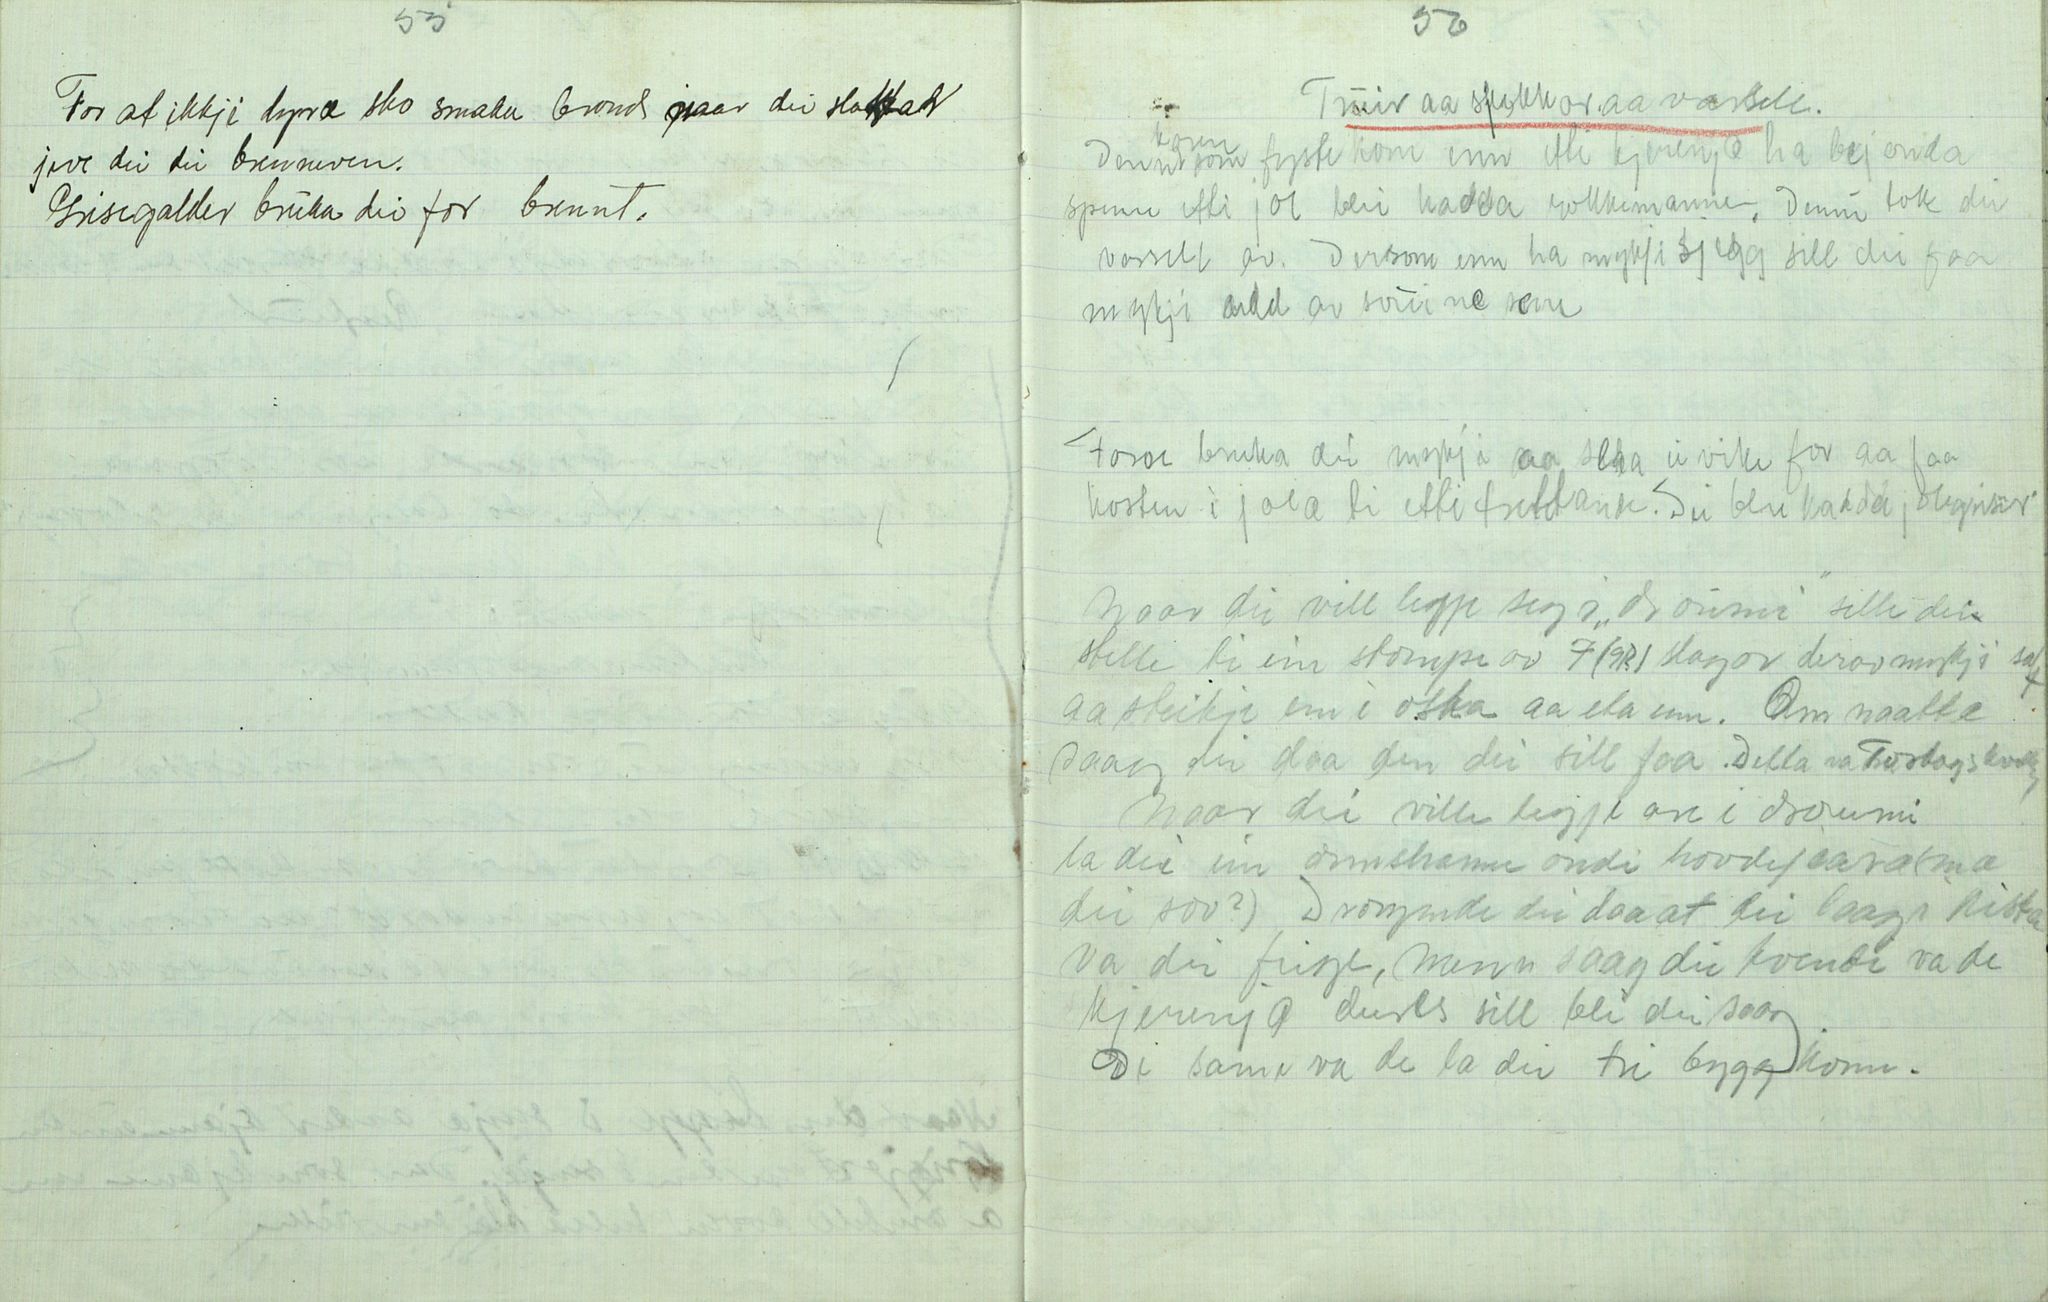 55
For at ikkji dyræ sko smaka brond naar dei slaktar
jeve dei dei brenneven.
Grisegalder bruka dei for brennt.
56
Truir aa spykkor aa varsell.
karen
Den som fyste kom inn etti kjeringæ ha bej onda
spenne etti jol blei kadda rokkemannen. Denni tok dei
varsell av. Dersom enn ha mykji skjegg sill dei faa
mykji udd av souine sine
Føroe bruka dei mykji aa slaa ei vike for aa faa
kosten i jolæ ti etti frettanke. Dei blei kadda jolegjiser
Naar dei vill leggje seg i „droumi" sille dei
stelle ti ein stompe av 7 (9?) slagor derav mykji salt
aa steikje enn i oska aa eta enn. Om naattæ
saag dei daa den dei sill faa. Detta va Torsdagskvelly
Naar dei ville leggje are i droumi
la dei ein ormehamm ondi hovdejæræ (mæ
dei sov?) Drøymde dei daa at dei laag i kista
va dei feige, menn saag dei kvende va de
kjeringæ deires sill bli dei saag
De same va de la dei tri byggkonn.